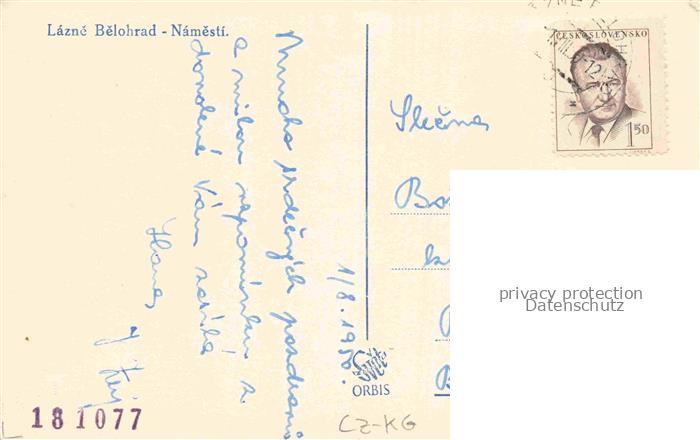 Lázně Bělohrad - Náměstí.
ČESKOSLOVENSKO
1 50
Slečna
Mnoho srdečných pozdravů
a milou vzpomínku z
dovolené Vám zasílá
Hana
1/8. 1950.
ORBIS
privacy protection
Datenschutz
181077
CZ-KG